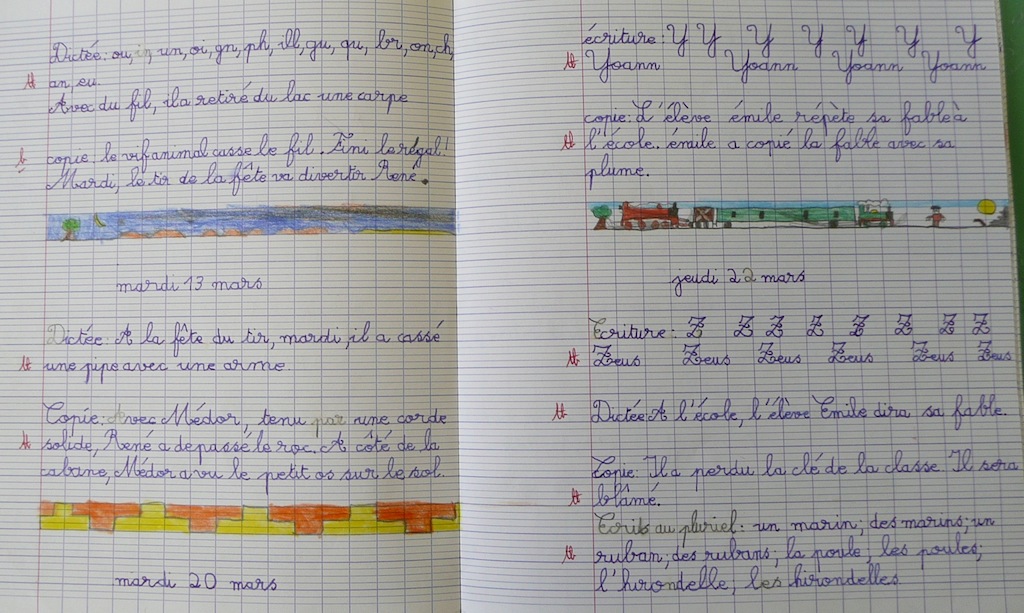 Dictée: ou, in, un, oi, gn, ph, ill, gu, qu, br, on, ch,
tb an, eu.
Avec du fil, il a retiré du lac une carpe
b copie, le vif animal casse le fil. Fini le régal!
Mardi, le tir de la fête va divertir René.
mardi 13 mars
Dictée: A la fête du tir, mardi, il a cassé
tb une pipe avec une arme.
Copie: Avec Médor, tenu par une corde
tb solide, René a depassé le roc. A côté de la
cabane, Médor a vu le petit os sur le sol.
mardi 20 mars
écriture: Y Y Y Y Y Y Y
tb Yoann Yoann Yoann Yoann
copie: L'élève émile répète sa fable à
tb l'école. émile a copié la fable avec sa
plume.
jeudi 22 mars
Ecriture: Z Z Z Z Z Z Z Z
tb Zeus Zeus Zeus Zeus Zeus Zeus
tb Dictée: A l'école, l'élève Emile dira sa fable.
Copie: Il a perdu la clé de la classe. Il sera
tb blâmé.
Ecrits au pluriel: un marin; des marins; un
tb ruban; des rubans; la poule; les poules;
l'hirondelle, les hirondelles